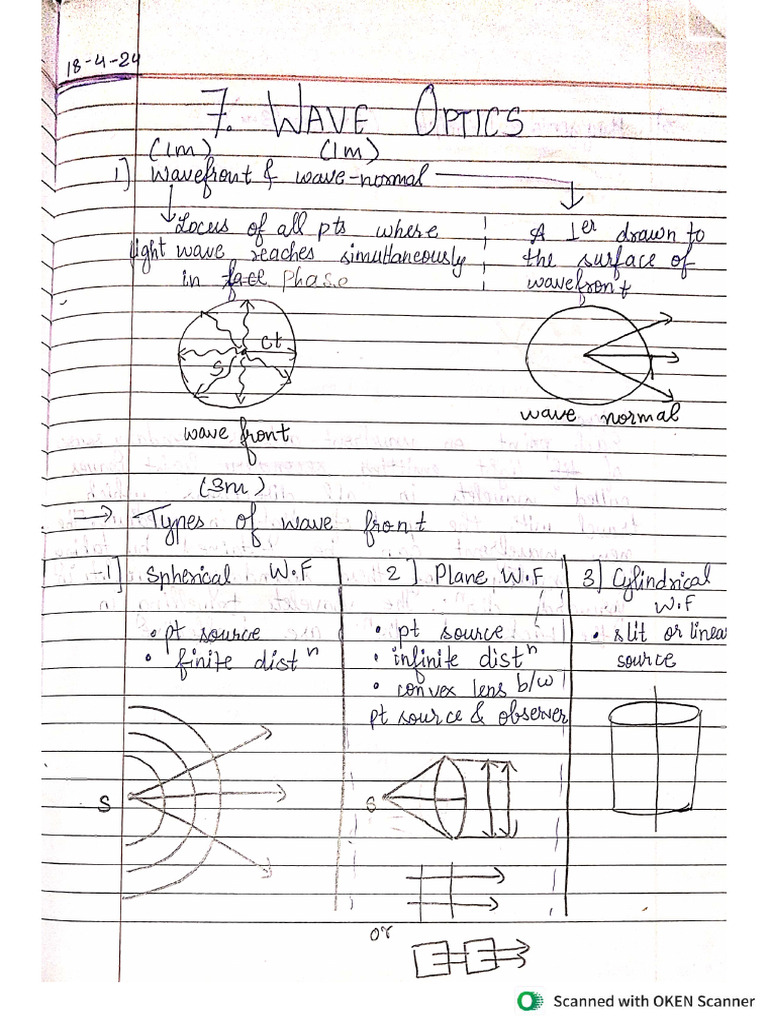 18-4-24
7. WAVE OPTICS
(1m) (1m)
1] Wavefront & wave-normal
Locus of all pts where
light wave reaches simultaneously
in face phase
A 1er drawn to
the surface of
wavefront
ct
S
wave front
wave normal
(3m)
→ Types of wave front
1] Spherical W.F
• pt source
• finite distn
S
2] Plane W.F
• pt source
• infinite distn
• convex lens b/w
pt source & observer
S
or
3] Cylindrical
W.F
• slit or linear
source
Scanned with OKEN Scanner